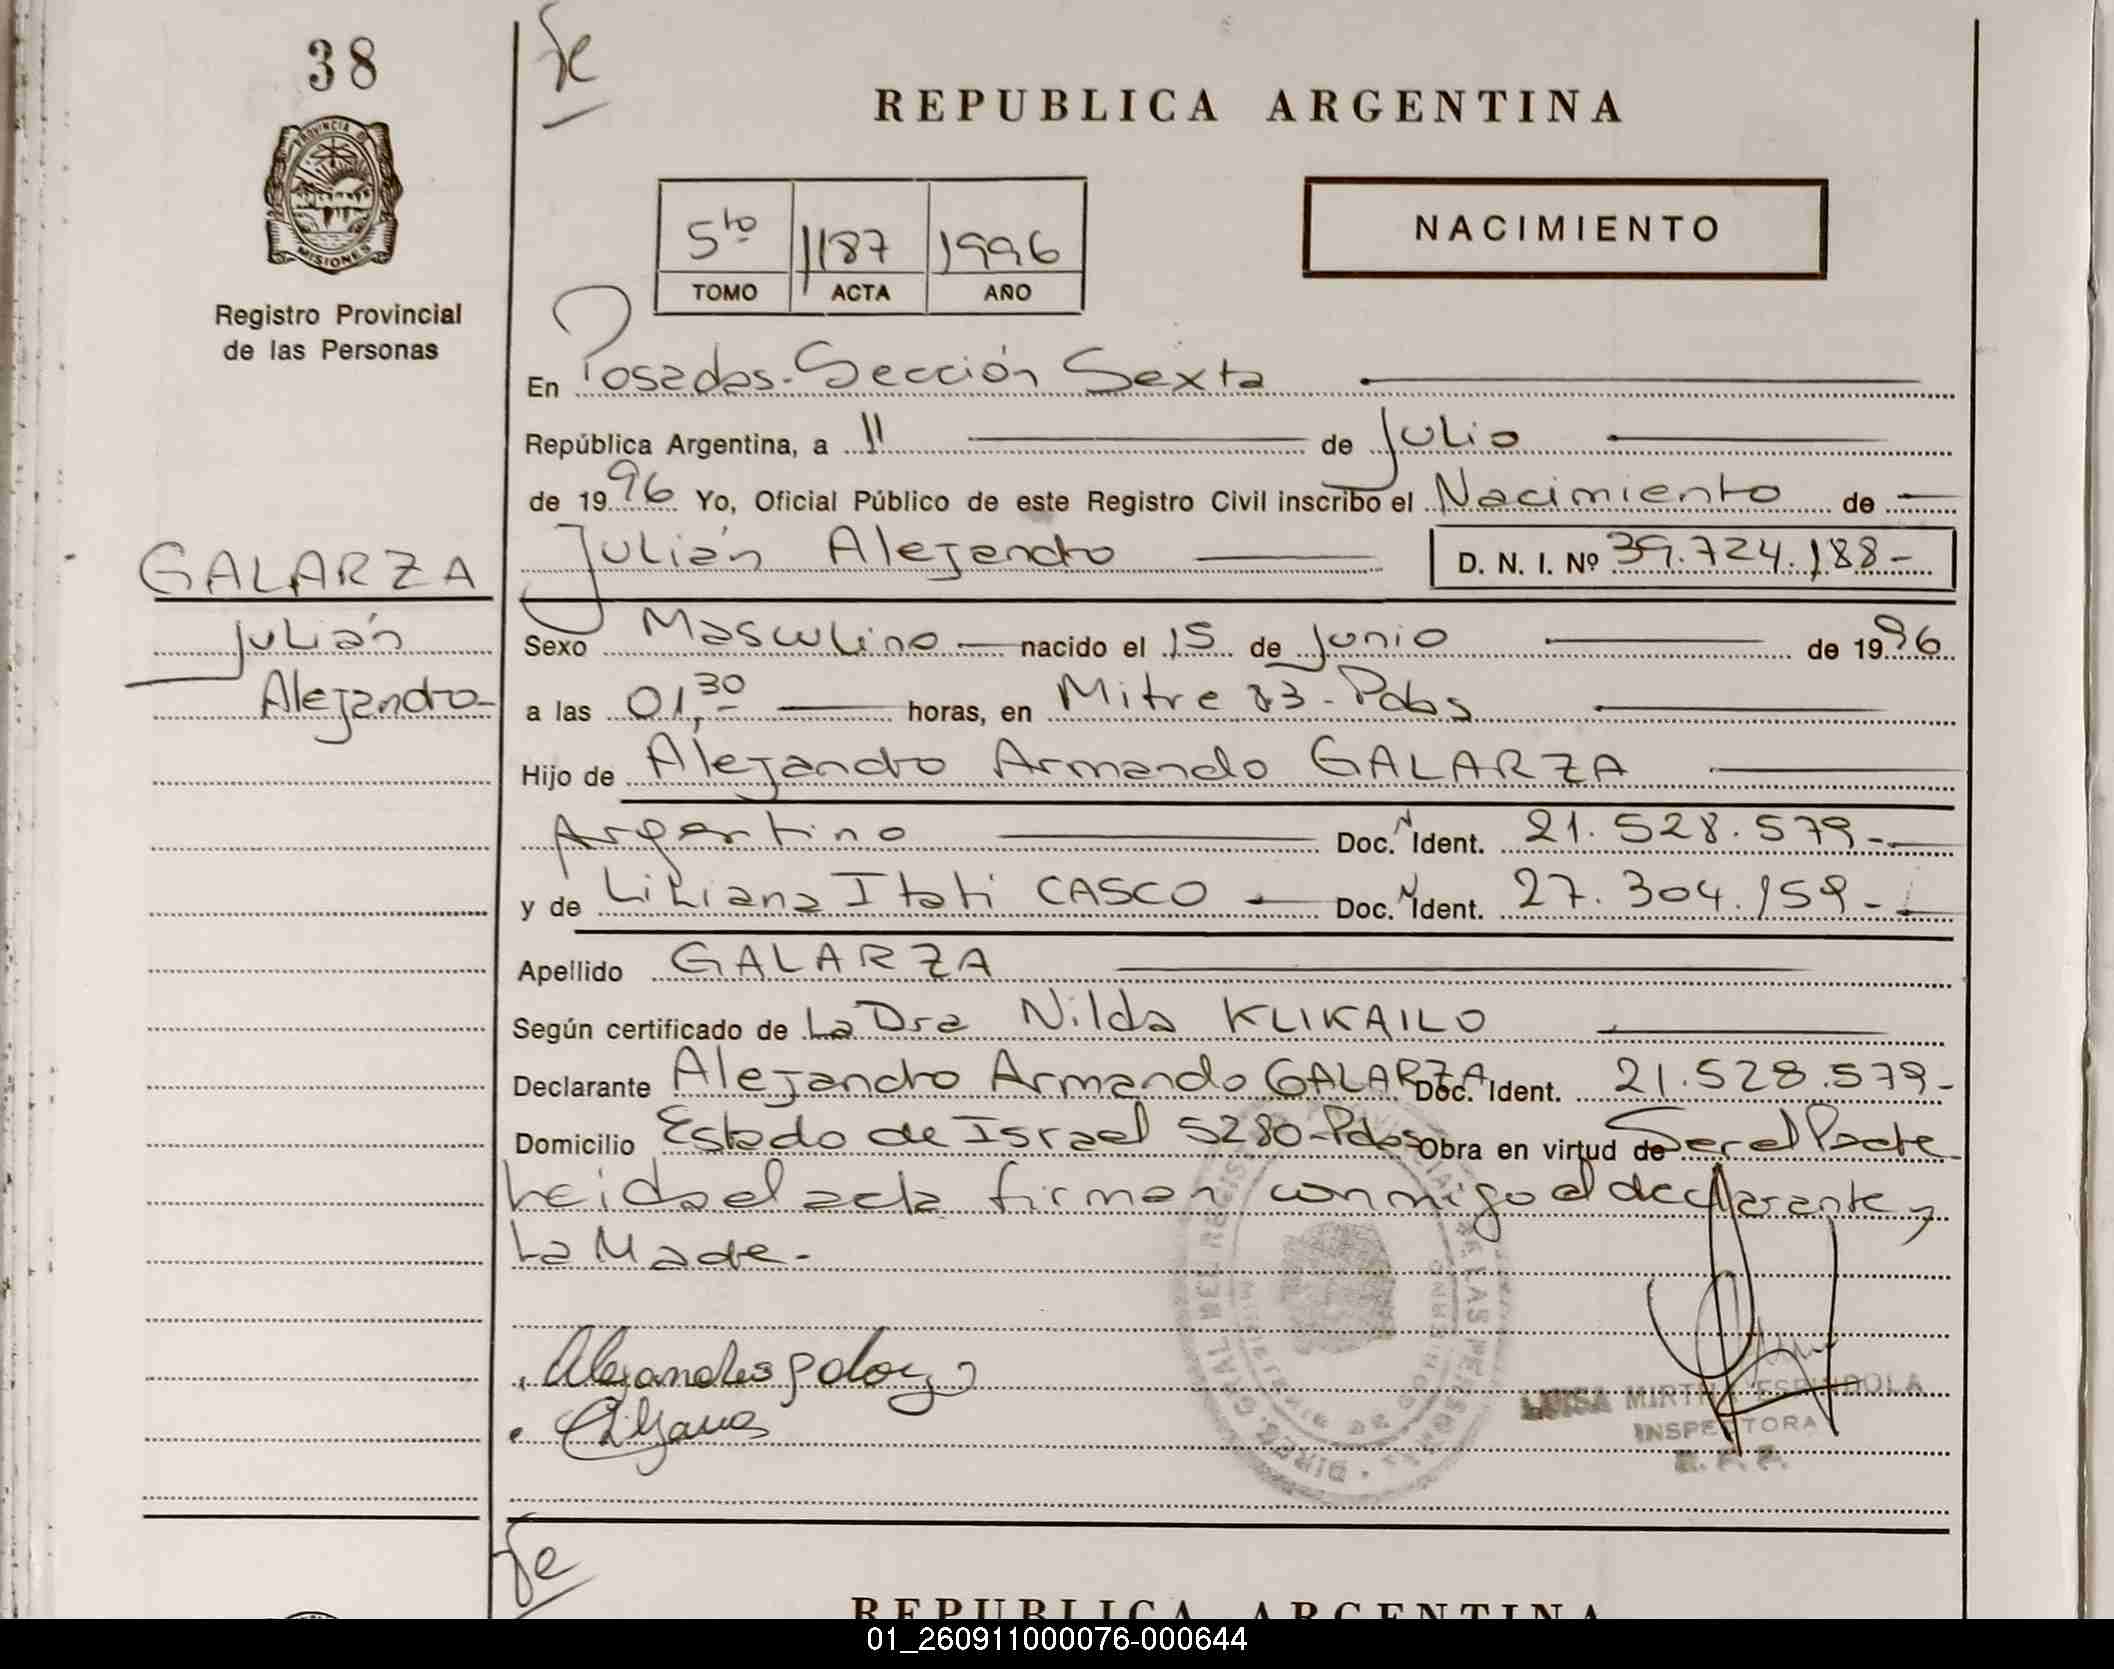 38
PROVINCIA DE
MISIONES
Registro Provincial
de las Personas
GALARZA
Julián
Alejandro-
fe
REPUBLICA ARGENTINA
5to 1187 1996
TOMO ACTA AÑO
NACIMIENTO
En Posadas-Sección Sexta
República Argentina, a 11 de Julio
de 1996 Yo, Oficial Público de este Registro Civil inscribo el Nacimiento de
Julián Alejandro D. N. I. Nº 39.724.188-
Sexo Masculino nacido el 15 de Junio de 1996
a las 01,30 horas, en Mitre 83-Pdas
Hijo de Alejandro Armando GALARZA
Argentino Doc. N Ident. 21.528.579-
y de Liliana Itati CASCO Doc. N Ident. 27.304.159-
Apellido GALARZA
Según certificado de La Dra Nilda KLIKAILO
Declarante Alejandro Armando GALARZA Doc. Ident. 21.528.579-
Domicilio Estado de Israel 5280-Pdas Obra en virtud de Ser el Padre
Leida el acta firman conmigo el declarante y
La Madre-
LUISA MIRTHA ESPINDOLA
INSPECTORA
fe
REPUBLICA ARGENTINA
01_260911000076-000644